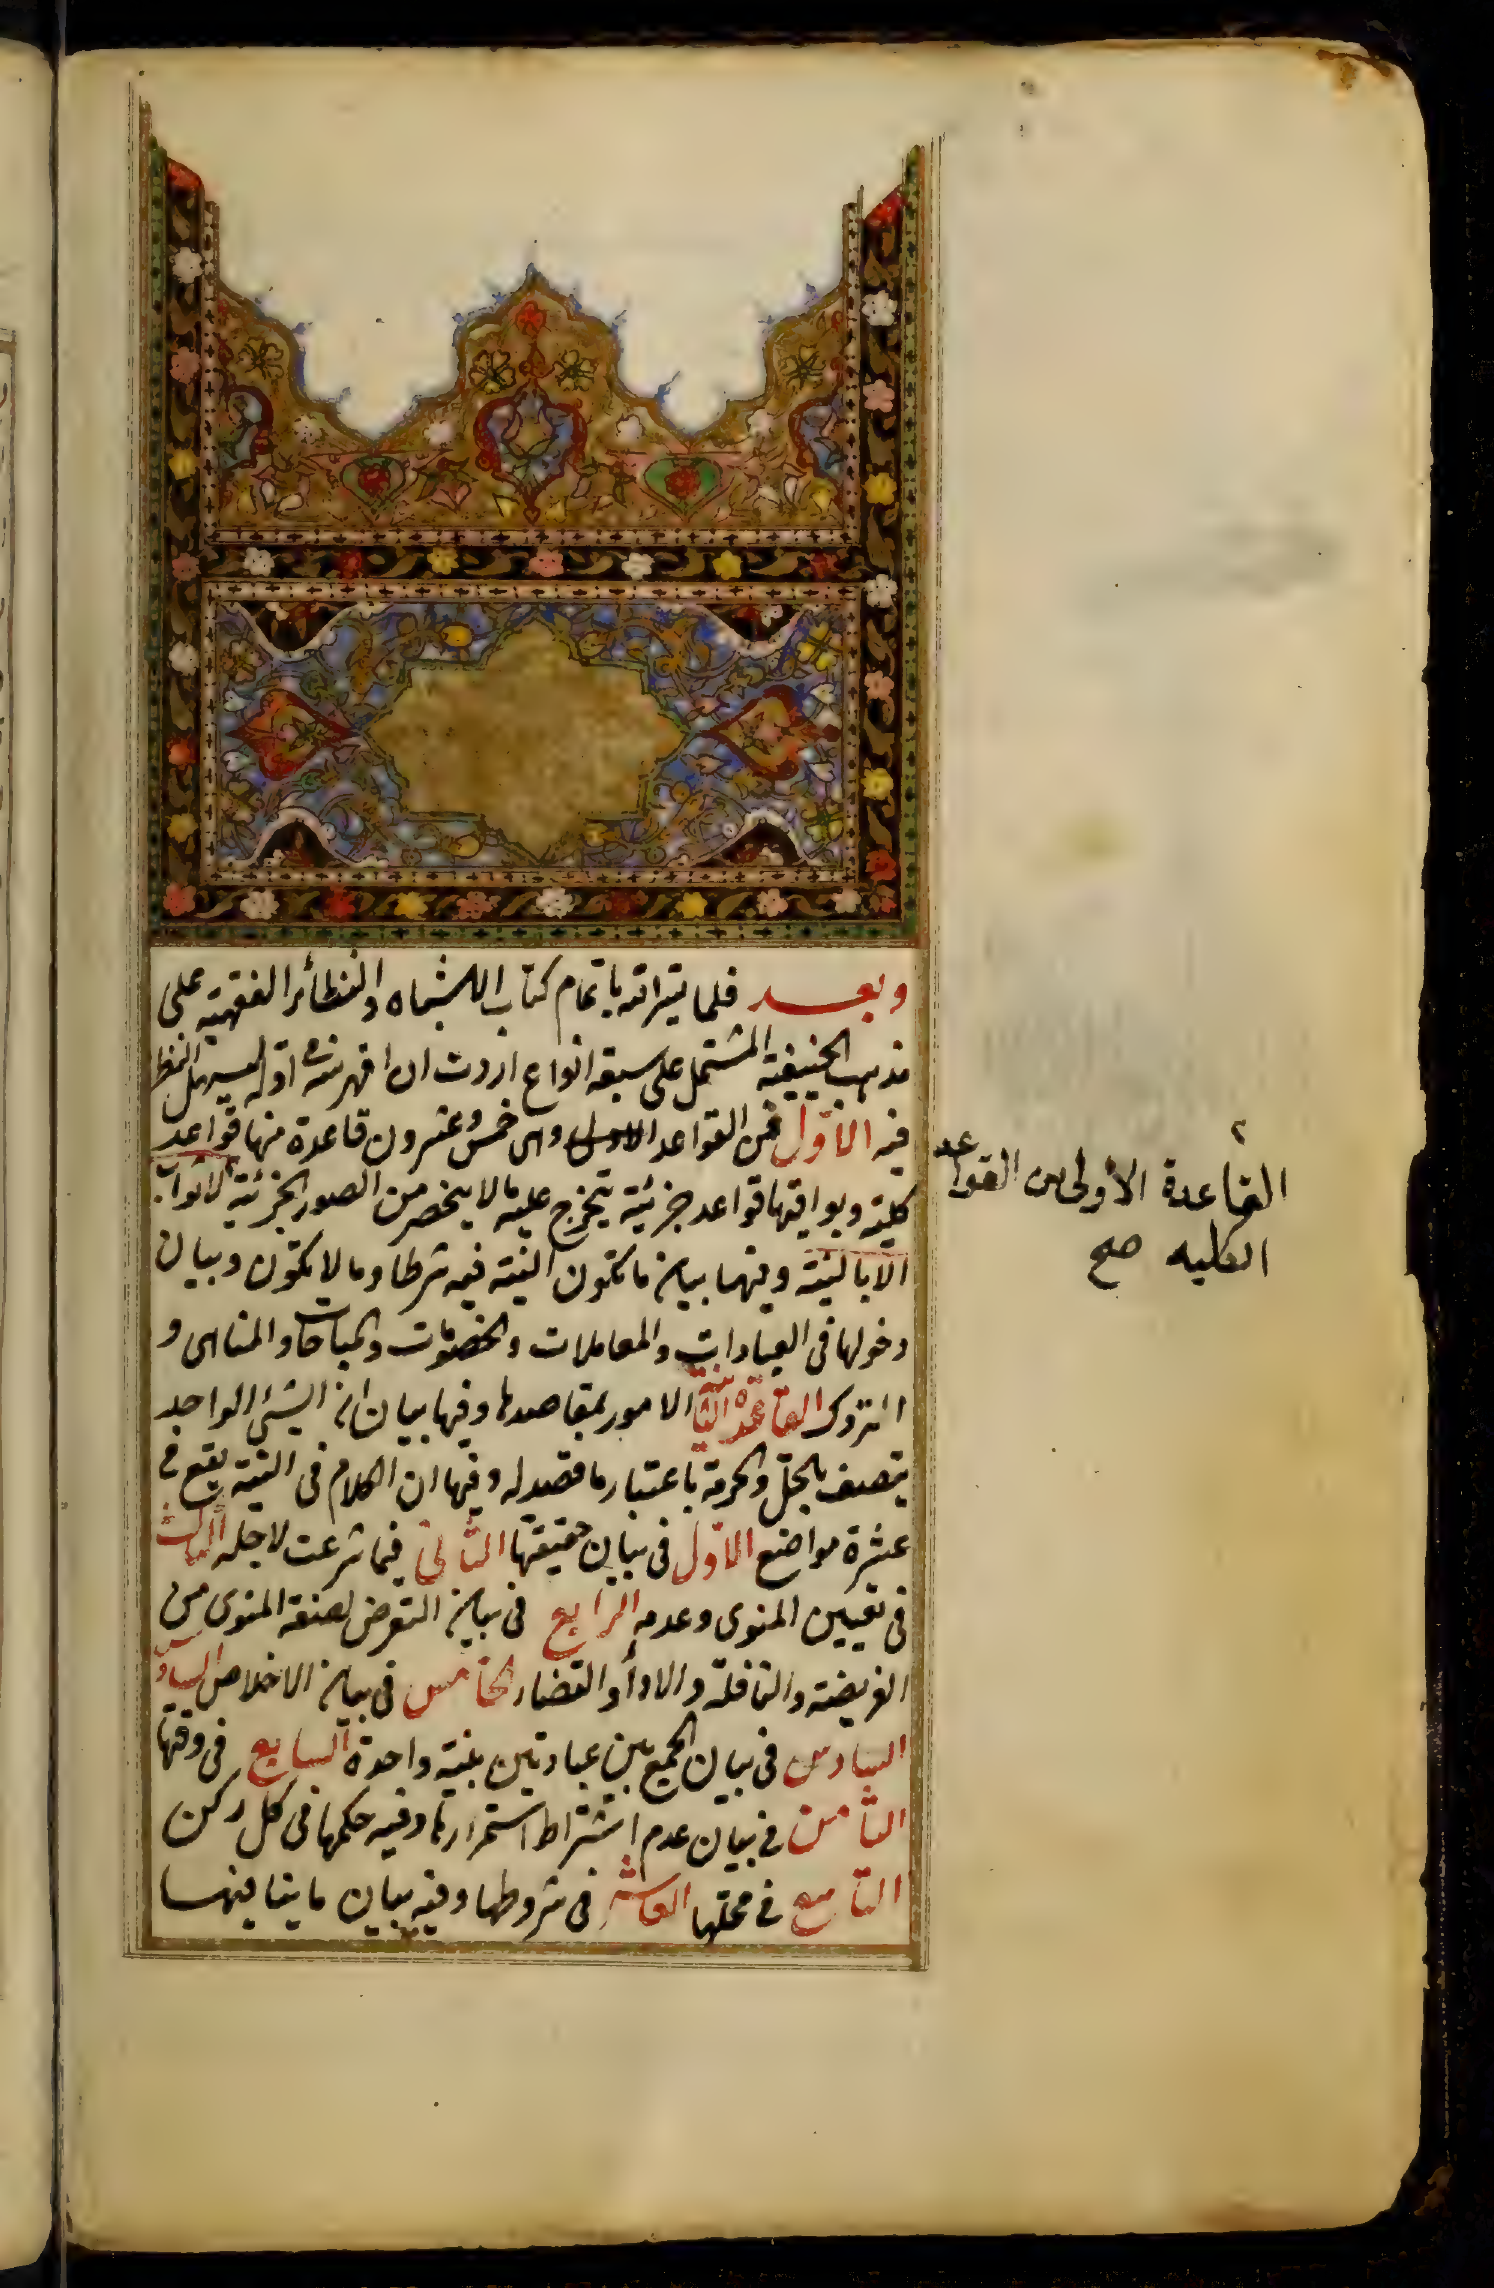 وبعد فلما يسر الله باتمام كتاب الاشباه والنظائر الفقهية على
مذهب الحنيفية المشتمل على سبعة انواع اردت ان افهرسه اوله ليسهل النظر
فيه الاول فن القواعد الاول وهى خمس وعشرون قاعدة منها قواعد
كلية وبواقيها قواعد جزئية يتخرج عليه مالا ينحصر من الصور الجزئية لاثواب
الا بالنية وفيها بيان ما تكون النية فيه شرطا وما لا تكون وبيان
دخولها فى العبادات والمعاملات والخصومات والمباحات والمناهى و
التروك القاعدة الثانية الامور بمقاصدها وفيها بيان ان الشئ الواحد
يتصف بالحل والحرمة باعتبار ما قصد له وفيها ان الكلام فى النية يقع فى
عشرة مواضع الاول فى بيان حقيقتها الثانى فيما شرعت لاجله الثالث
فى تعيين المنوى وعدمه الرابع فى بيان التعرض لصفة المنوى من
الفريضة والنافلة والاداء والقضاء الخامس فى بيان الاخلاص السادس
السادس فى بيان الجمع بين عبادتين بنية واحدة السابع فى وقتها
الثامن فى بيان عدم اشتراط استمرارها وفيه حكمها فى كل ركن
التاسع فى محلها العاشر فى شروطها وفيه بيان ما ينافيها
القاعدة الاولى من القواعد
الكليه صح